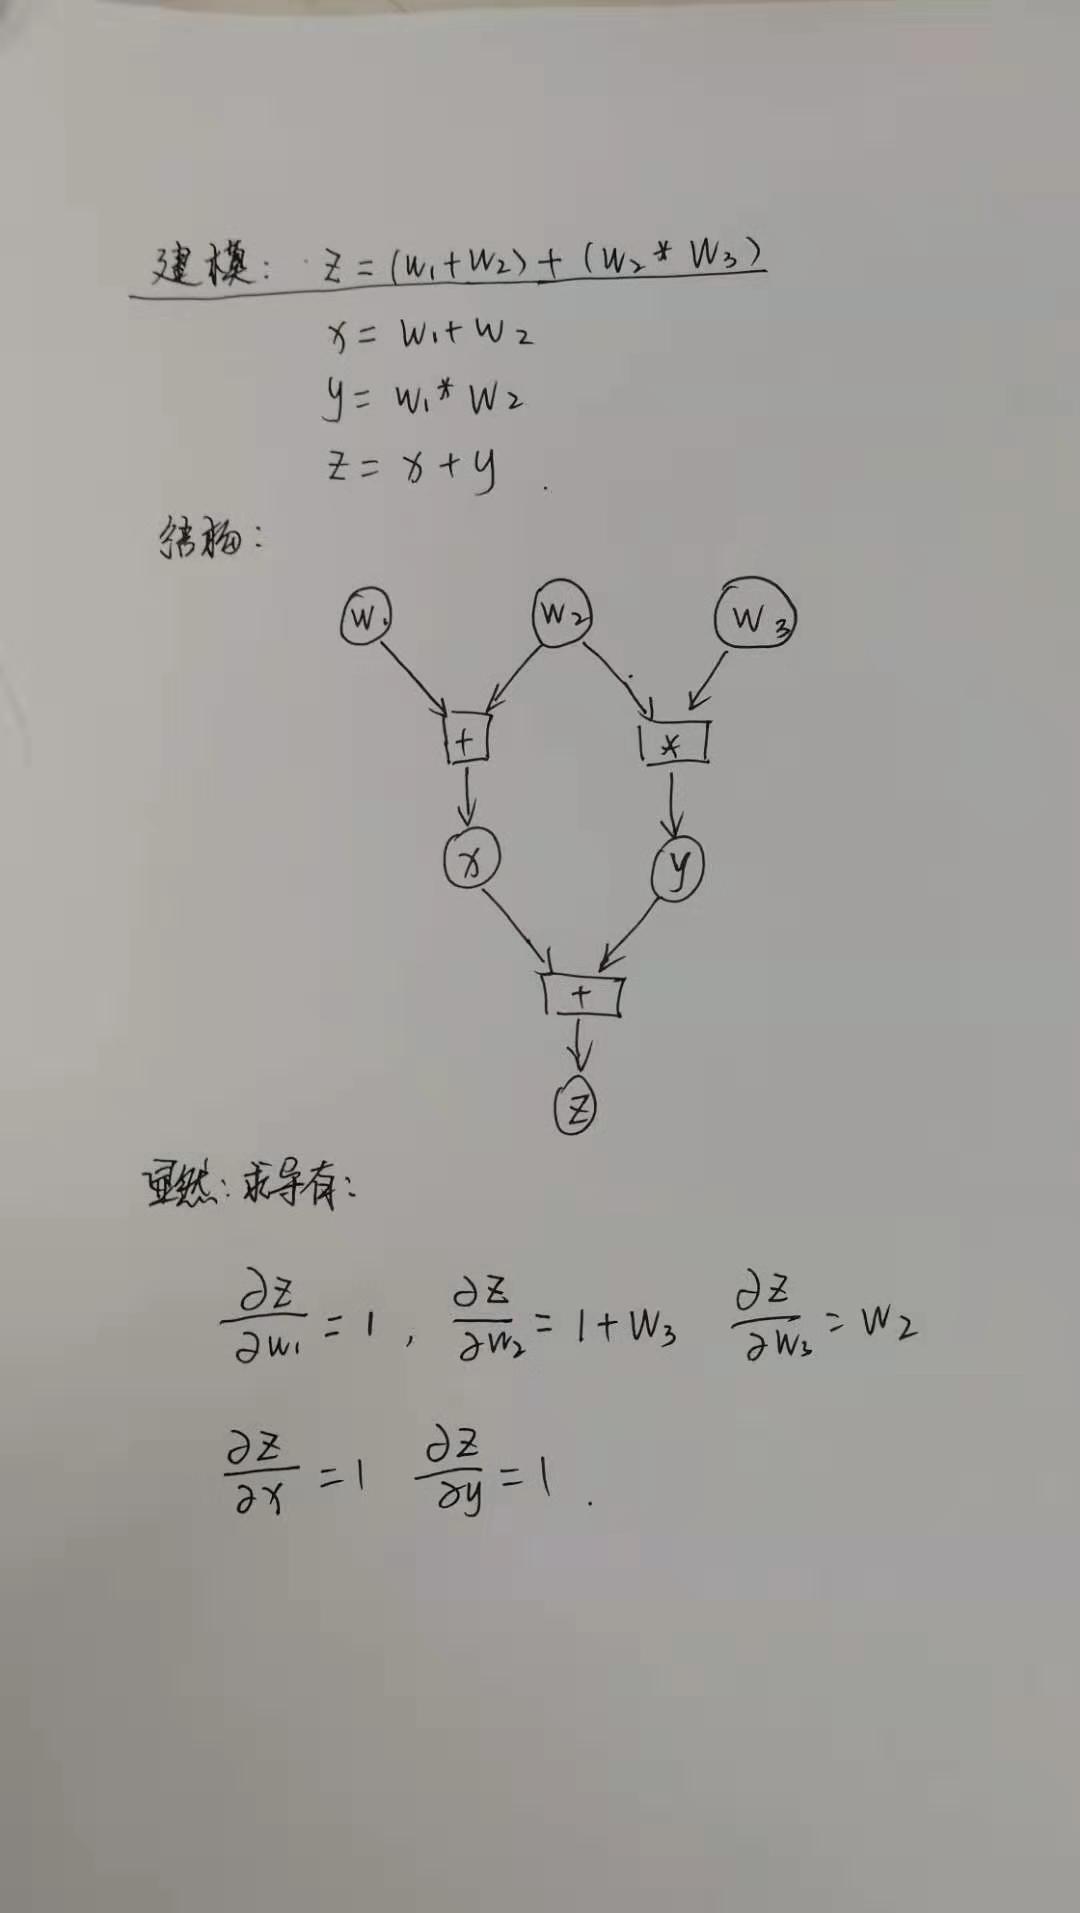 建模: z = (w₁+w₂) + (w₂ * w₃)
x = w₁+w₂
y = w₁ * w₂
z = x + y .
结构:
w₁ w₂ w₃
+ *
x y
+
z
显然: 求导有:
∂z/∂w₁ = 1 , ∂z/∂w₂ = 1 + w₃ ∂z/∂w₃ = w₂
∂z/∂x = 1 ∂z/∂y = 1 .